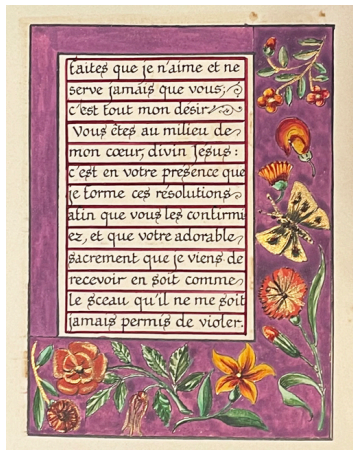 faites que je n'aime et ne
serve jamais que vous;
c'est tout mon désir
Vous êtes au milieu de
mon cœur, divin Jesus:
c'est en votre présence que
je forme ces résolutions
afin que vous les confirmi
ez, et que votre adorable
sacrement que je viens de
recevoir en soit comme
le sceau qu'il ne me soit
jamais permis de violer.